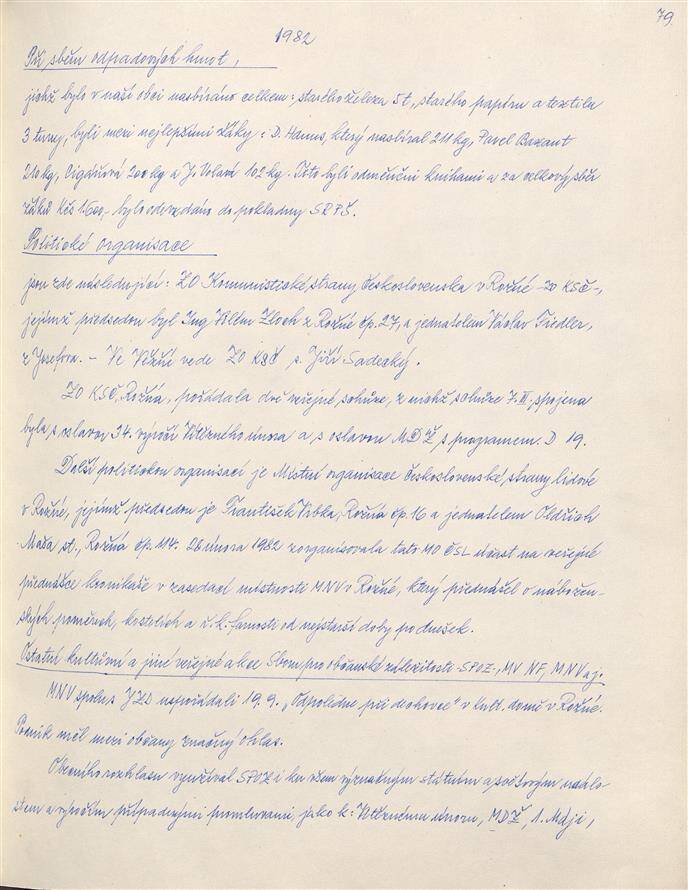 79.
1982
Při sběru odpadových hmot,
jichž bylo v naší obci nasbíráno celkem: starého železa 5 t, starého papíru a textilu
3 tuny, byli mezi nejlepšími žáky: D. Hanus, který nasbíral 211 kg, Pavel Bazant
210 kg, Cigánová 200 kg a J. Volavá 102 kg. Tito byli odměněni knihami a za celkový sběr
žáků Kčs 1.600,- bylo odevzdáno do pokladny SRPŠ.
Politické organisace
jsou zde následující: ZO Komunistické strany Československa v Rožné - ZO KSČ -,
jejímž předsedou byl Ing Vilém Zloch z Rožné čp. 27, a jednatelem Václav Fiedler,
z Josefova. - Ve Věžné vede ZO KSČ s. Jiří Sadecký.
ZO KSČ, Rožná, pořádala dvě veřejné schůze, z nichž schůze 7. III. spojena
byla s oslavou 34. výročí Vítězného února a s oslavou MDŽ, s programem. D 19.
Další politickou organisací je Místní organisace Československé strany lidové
v Rožné, jejímž předsedou je František Vrbka, Rožná čp. 16 a jednatelem Oldřich
Máša st., Rožná čp. 114. 26 února 1982 zorganisovala tato MO ČSL účast na veřejné
přednášce kronikáře v zasedací místnosti MNV v Rožné, který přednášel o nábožen-
ských poměrech, kostelích a ř. k. farnosti od nejstarší doby po dnešek.
Ostatní kulturní a jiné veřejné akce Sboru pro občanské záležitosti - SPOZ -, MV NF, MNV aj.
MNV spolu s JZD uspořádali 19. 9. „Odpoledne při dechovce" v kult. domě v Rožné.
Podnik měl mezi občany značný ohlas.
Obecního rozhlasu využíval SPOZ i ku všem význačným státním a světovým událo-
stem a výročím případnými promluvami, jako k: Vítěznému únoru, MDŽ, 1. Máji,